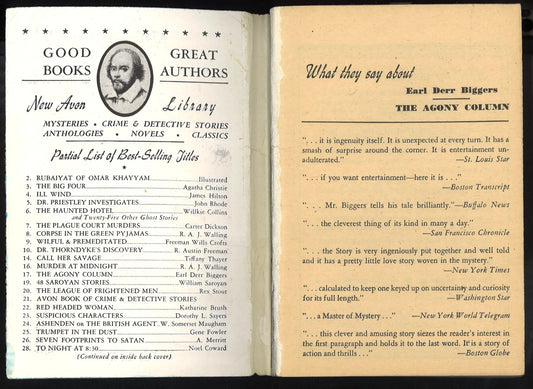 GOOD BOOKS
GREAT AUTHORS
New Avon Library
MYSTERIES • CRIME & DETECTIVE STORIES
ANTHOLOGIES • NOVELS • CLASSICS
Partial List of Best-Selling Titles
2. RUBAIYAT OF OMAR KHAYYAM Illustrated
3. THE BIG FOUR Agatha Christie
4. ILL WIND James Hilton
5. DR. PRIESTLEY INVESTIGATES John Rhode
6. THE HAUNTED HOTEL Willkie Collins
and Twenty-Five Other Ghost Stories
7. THE PLAGUE COURT MURDERS Carter Dickson
8. CORPSE IN THE GREEN PYJAMAS R. A. J. Walling
9. WILFUL & PREMEDITATED Freeman Wills Crofts
10. DR. THORNDYKE'S DISCOVERY R. Austin Freeman
14. CALL HER SAVAGE Tiffany Thayer
16. MURDER AT MIDNIGHT R. A. J. Walling
17. THE AGONY COLUMN Earl Derr Biggers
19. 48 SAROYAN STORIES William Saroyan
20. THE LEAGUE OF FRIGHTENED MEN Rex Stout
21. AVON BOOK OF CRIME & DETECTIVE STORIES
22. RED HEADED WOMAN Katharine Brush
23. SUSPICIOUS CHARACTERS Dorothy L. Sayers
24. ASHENDEN OR THE BRITISH AGENT W. Somerset Maugham
25. TRUMPET IN THE DUST Gene Fowler
26. SEVEN FOOTPRINTS TO SATAN A. Merritt
28. TO NIGHT AT 8:30 Noel Coward
(Continued on inside back cover)
What they say about
Earl Derr Biggers
THE AGONY COLUMN
". . . it is ingenuity itself. It is unexpected at every turn. It has a
smash of surprise around the corner. It is entertainment un-
adulterated." —St. Louis Star
". . . if you want entertainment—here it is . . ."
—Boston Transcript
". . . Mr. Biggers tells his tale brilliantly."—Buffalo News
". . . the cleverest thing of its kind in many a day."
—San Francisco Chronicle
". . . the Story is very ingeniously put together and well told
and it has a pretty little love story woven in the mystery."
—New York Times
". . . calculated to keep one keyed up on uncertainty and curiosity
for its full length." —Washington Star
". . . a Master of Mystery . . ." —New York World Telegram
". . . this clever and amusing story siezes the reader's interest in
the first paragraph and holds it to the last word. It is a story of
action and thrills . . ." —Boston Globe